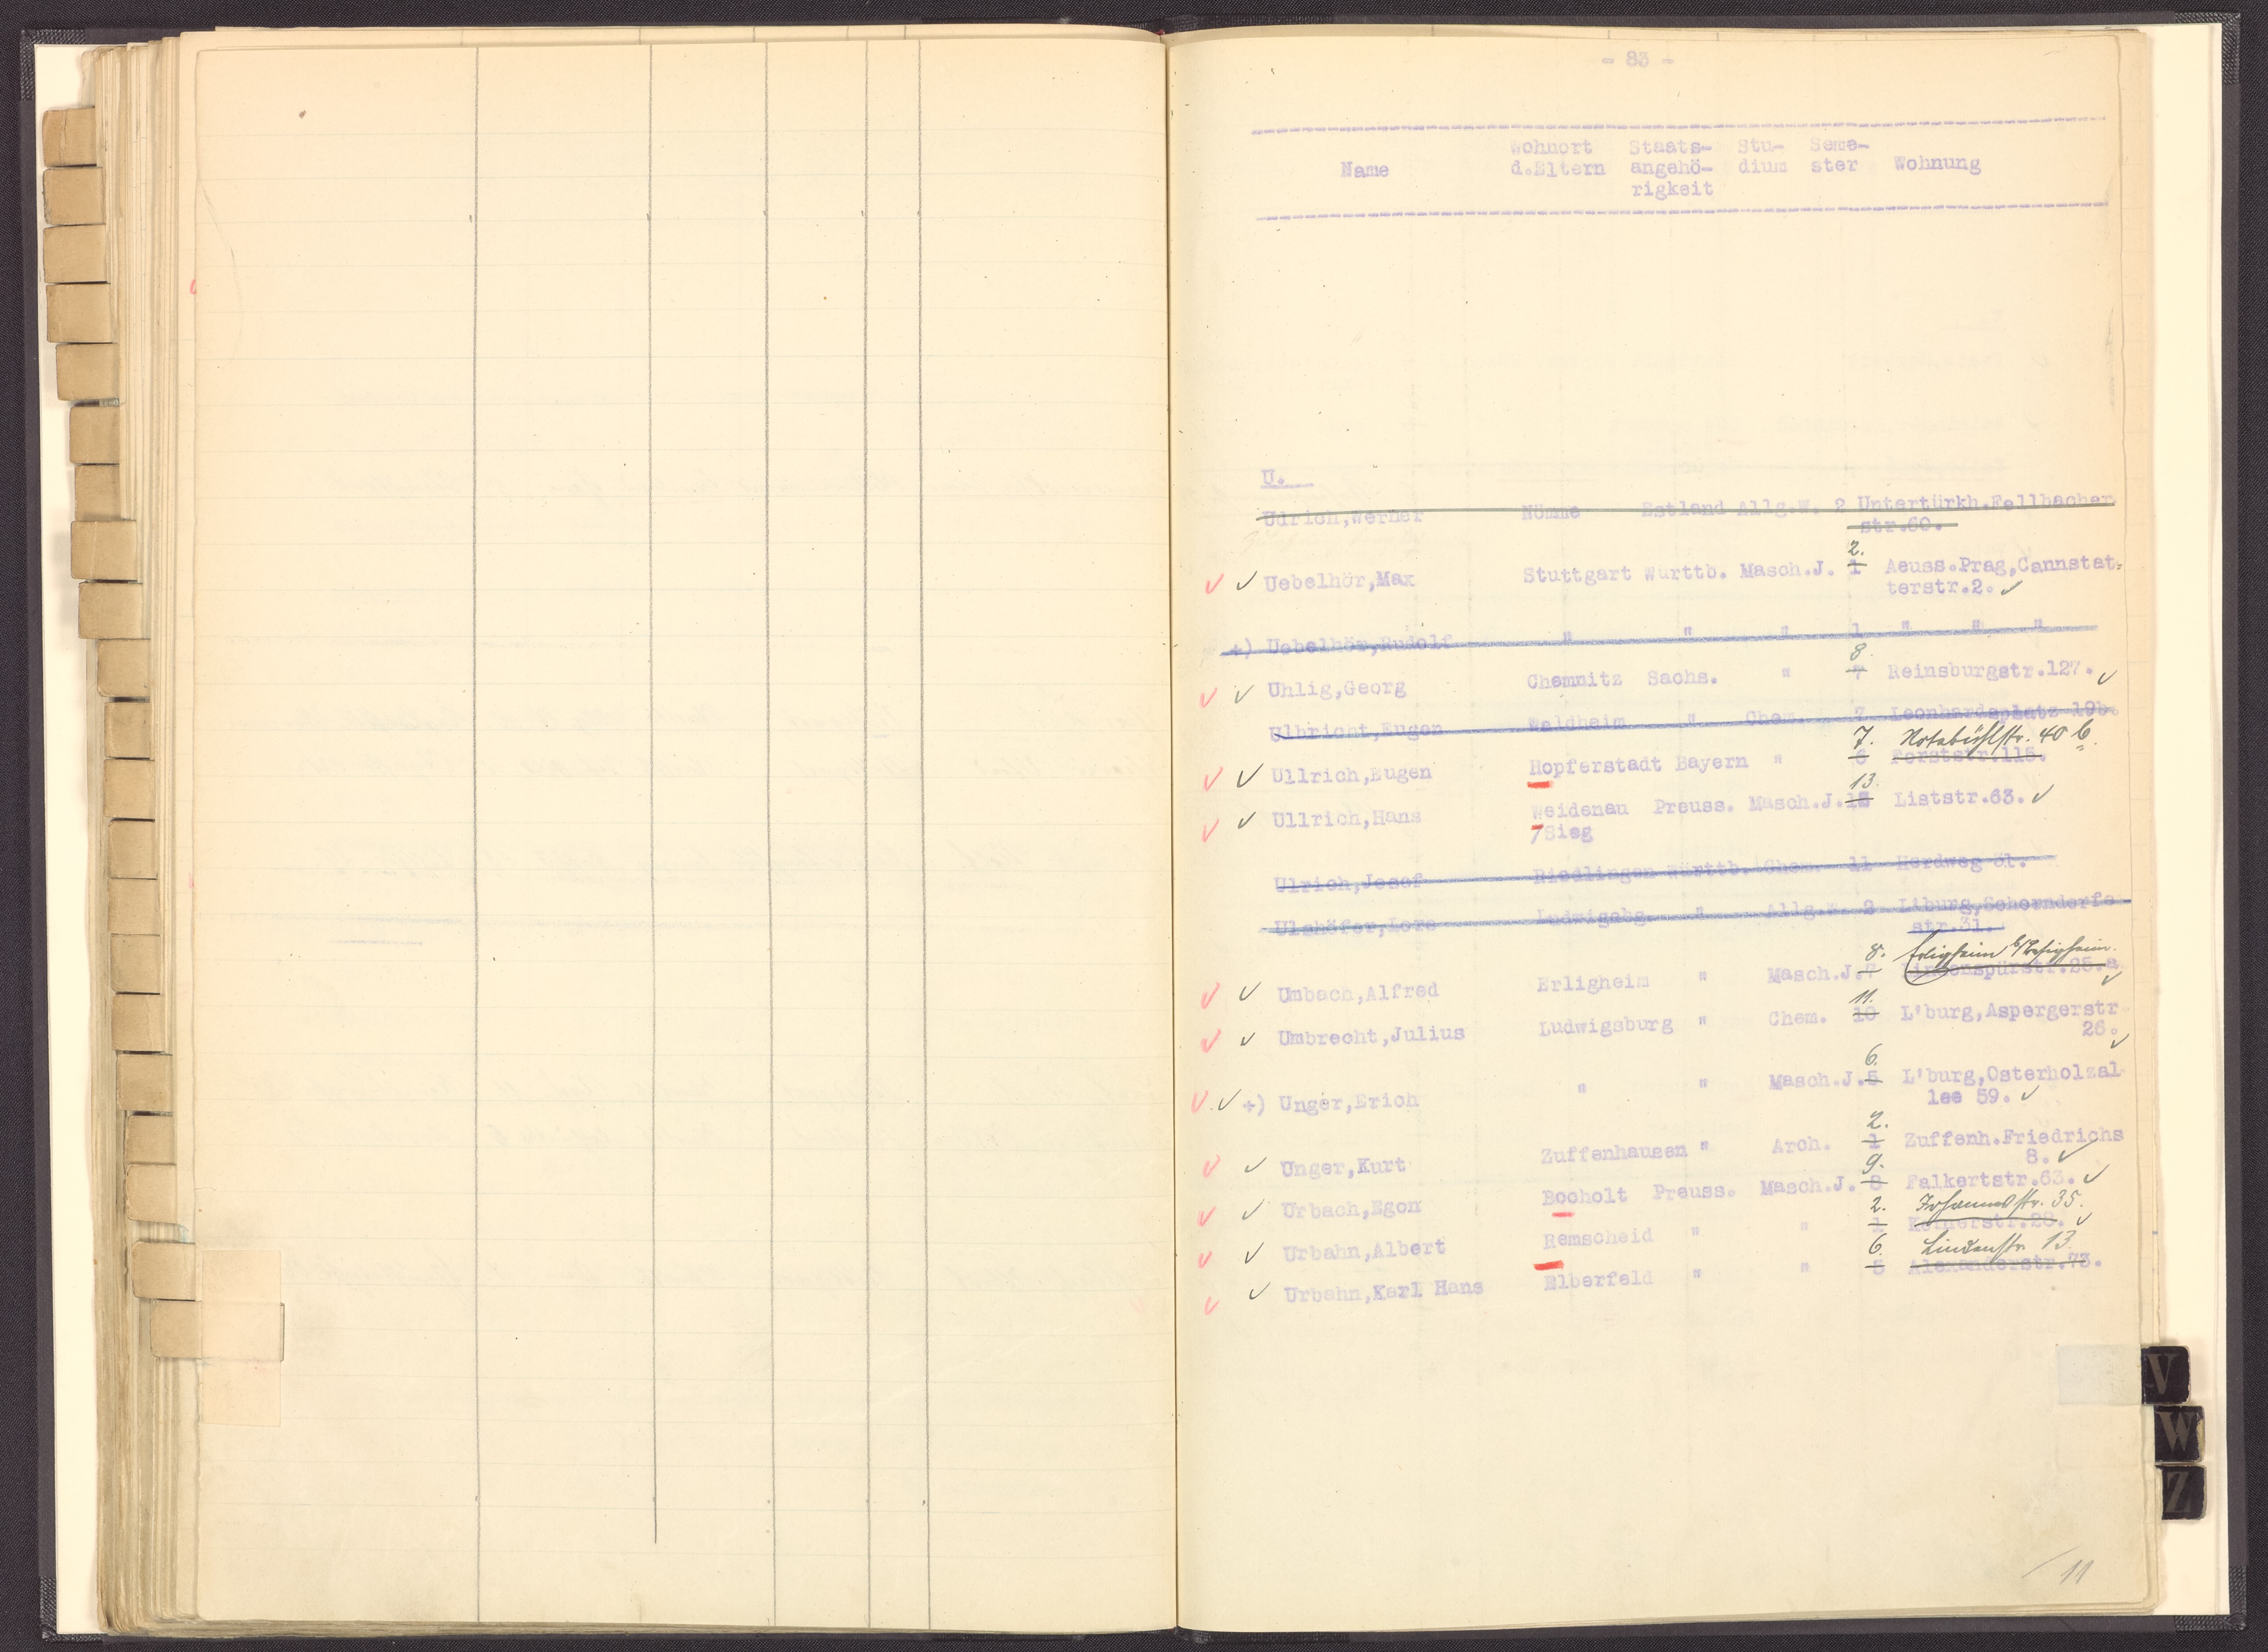 - 83 -
Name Wohnort d.Eltern Staats- angehö- rigkeit Stu- dium Seme- ster Wohnung
U.
Udrich,Werner Nömme Estland Allg.W. 2 Untertürkh.Fellbacher
str.60.
2.
Uebelhör,Max Stuttgart Württb. Masch.J. 1 Aeuss.Prag,Cannstat-
terstr.2.
+) Uebelhör,Rudolf " " " 1 " " "
8.
Uhlig,Georg Chemnitz Sachs. " 7 Reinsburgstr.127.
Ulbricht,Eugen Waldheim " Chem. 7 Leonhardsplatz 19b.
7. 40 b.
Ullrich,Eugen Hopferstadt Bayern " 6 Forststr.115.
13.
Ullrich,Hans Weidenau Preuss. Masch.J. Liststr.63.
/Sieg
Ulrich,Josef Riedlingen Württb. Chem. 11 Herdweg 31.
Ulshöfer,Lore Ludwigsbg. " Allg.W. 2 L'burg,Schorndorfe
str.31.
8. Erligheim b/Besigheim.
Umbach,Alfred Erligheim " Masch.J. 7 25.a
11.
Umbrecht,Julius Ludwigsburg " Chem. 10 L'burg,Aspergerstr
26.
6.
+) Unger,Erich " " Masch.J. 5 L'burg,Osterholzal
lee 59.
2.
Unger,Kurt Zuffenhausen " Arch. 1 Zuffenh.Friedrichs
8.
9.
Urbach,Egon Bocholt Preuss. Masch.J. 8 Falkertstr.63.
2. Johannesstr. 35.
Urbahn,Albert Remscheid " " 1 28.
6. Lindenstr. 13.
Urbahn,Karl Hans Elberfeld " " 5 Alexanderstr.73.
11
V
W
Z